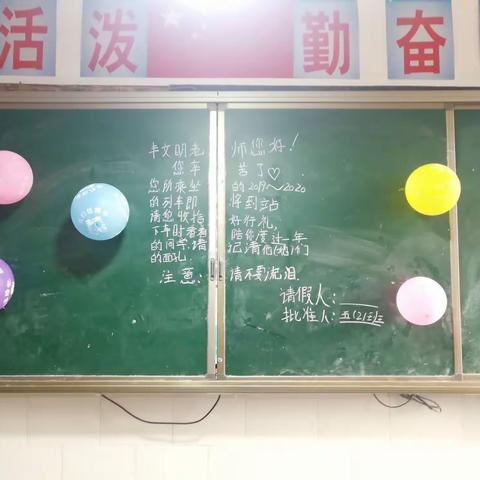 活泼 勤奋
丰文明老师您好！
您辛苦了♡
您所乘坐的2019～2020
的列车即将到站
请您收拾好行礼，
下车时看看陪您度过一年
的同学，请记清他(她)们
的面孔。
注意：请不要流泪.
请假人：
批准人：五(2)班